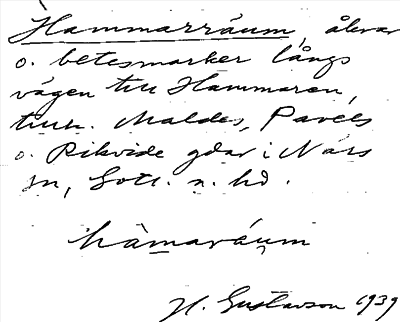 Hammarräum, åkrar
o. betesmarker längs
vägen till Hammaren,
tillh. Maldes, Pavels
o. Rikvide gdar i När
sn, Gotl. s. hd.
hàmaráum
H. Gustavson 1939